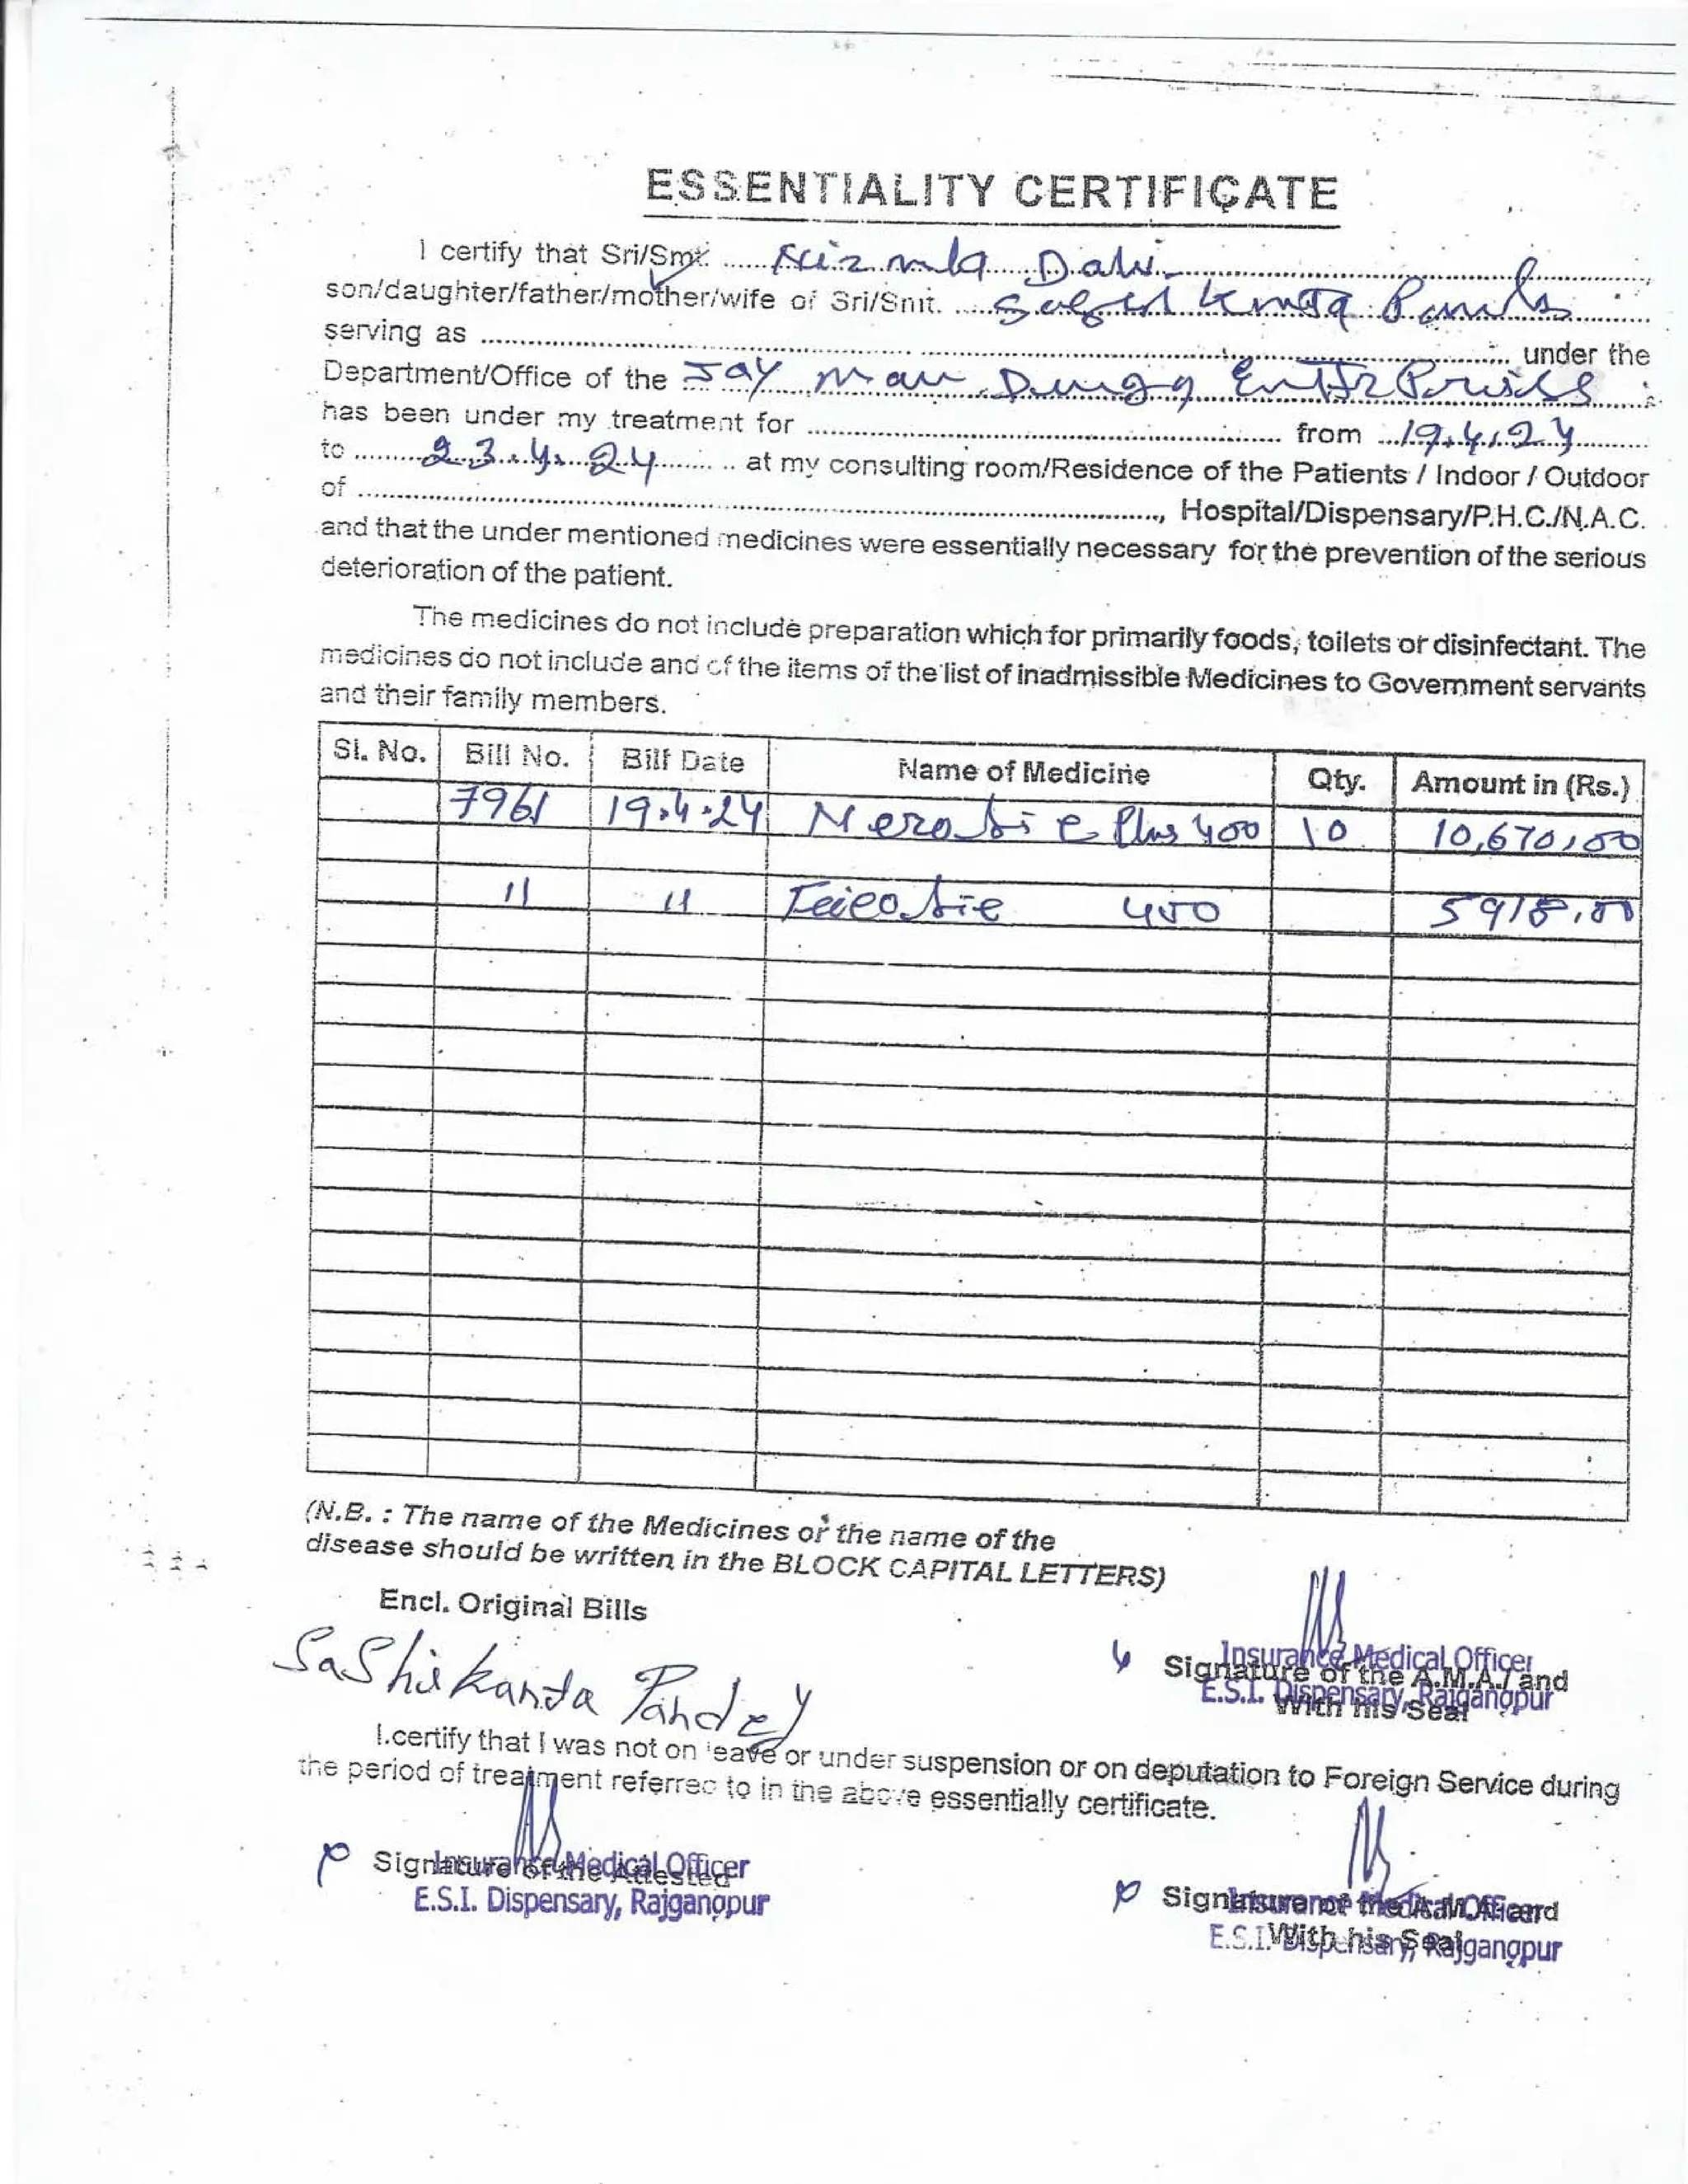 ESSENTIALITY CERTIFICATE
I certify that Sri/Smt. ......
son/daughter/father/mother/wife of Sri/Smt. ......
serving as ...... under the
Department/Office of the Jay Maa
has been under my treatment for ...... from 19.4.24
to 23.4.24 at my consulting room/Residence of the Patients / Indoor / Outdoor
of ......, Hospital/Dispensary/P.H.C./N.A.C.
and that the under mentioned medicines were essentially necessary for the prevention of the serious
deterioration of the patient.
The medicines do not include preparation which for primarily foods, toilets or disinfectant. The
medicines do not include and of the items of the list of inadmissible Medicines to Government servants
and their family members.
Sl. No. Bill No. Bill Date Name of Medicine Qty. Amount in (Rs.)
7961 19.4.24 Plus 400 10 10,670,00
11 11 400 5918,00
(N.B. : The name of the Medicines or the name of the
disease should be written in the BLOCK CAPITAL LETTERS)
Encl. Original Bills
Sashikanta Pandey
Insurance Medical Officer
Signature of the A.M.A./ and
E.S.I. Dispensary, Rajgangpur
With his Seal
I.certify that I was not on leave or under suspension or on deputation to Foreign Service during
the period of treatment referred to in the above essentially certificate.
Signature of the Attested
Insurance Medical Officer
E.S.I. Dispensary, Rajgangpur
Signature of the A.M.A. and
Insurance Medical Officer
With his Seal
E.S.I. Dispensary, Rajgangpur